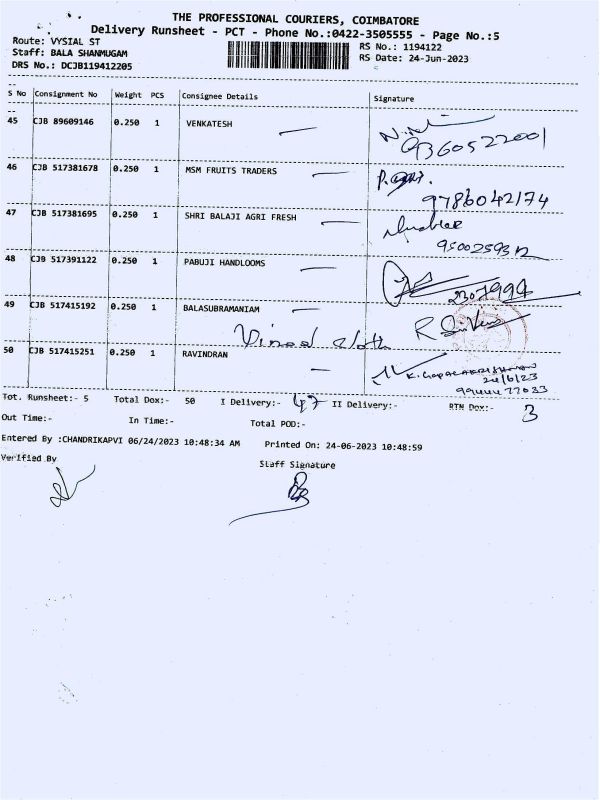 THE PROFESSIONAL COURIERS, COIMBATORE
Delivery Runsheet - PCT - Phone No.:0422-3505555 - Page No.:5
Route: VYSIAL ST
RS No.: 1194122
Staff: BALA SHANMUGAM
RS Date: 24-Jun-2023
DRS No.: DCJB119412205
S No Consignment No Weight PCS Consignee Details Signature
45 CJB 89609146 0.250 1 VENKATESH
9360522001
46 CJB 517381678 0.250 1 MSM FRUITS TRADERS
9786042174
47 CJB 517381695 0.250 1 SHRI BALAJI AGRI FRESH
48 CJB 517391122 0.250 1 PABUJI HANDLOOMS
49 CJB 517415192 0.250 1 BALASUBRAMANIAM
50 CJB 517415251 0.250 1 RAVINDRAN
K. GOPALAKRISHNAN
24/6/23
Tot. Runsheet:- 5 Total Dox:- 50 I Delivery:- 47 II Delivery:- RTN Dox:- 3
Out Time:- In Time:- Total POD:-
Entered By :CHANDRIKAPVI 06/24/2023 10:48:34 AM Printed On: 24-06-2023 10:48:59
Verified By Staff Signature